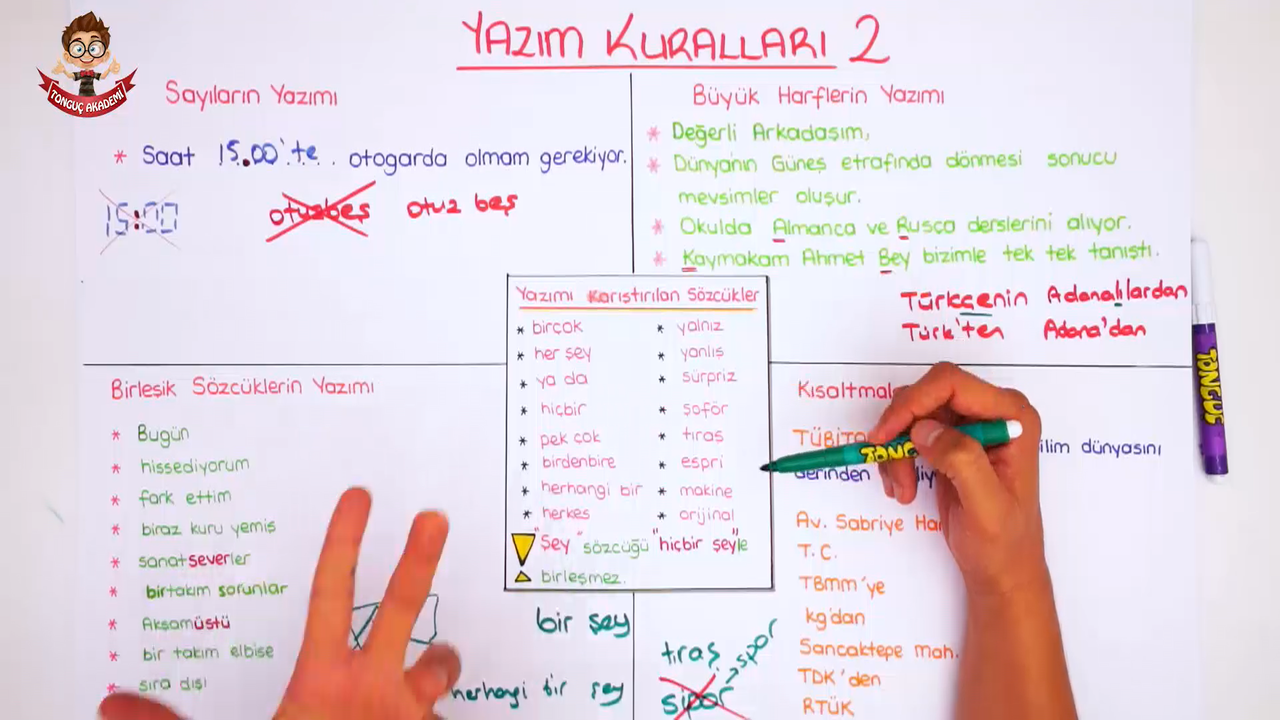 TONGUÇ AKADEMİ
YAZIM KURALLARI 2
Sayıların Yazımı
* Saat 15.00'te otogarda olmam gerekiyor.
15:00
otuzbeş otuz beş
Büyük Harflerin Yazımı
* Değerli Arkadaşım,
* Dünya'nın Güneş etrafında dönmesi sonucu
mevsimler oluşur.
* Okulda Almanca ve Rusça derslerini alıyor.
* Kaymakam Ahmet Bey bizimle tek tek tanıştı.
Türkçenin Adanalılardan
Türk'ten Adana'dan
Yazımı Karıştırılan Sözcükler
* birçok
* her şey
* ya da
* hiçbir
* pek çok
* birdenbire
* herhangi bir
* herkes
* yalnız
* yanlış
* sürpriz
* şoför
* tıraş
* espri
* makine
* orijinal
"Şey" sözcüğü "hiçbir şey"le
birleşmez.
Birleşik Sözcüklerin Yazımı
* Bugün
* hissediyorum
* fark ettim
* biraz kuru yemiş
* sanatseverler
* birtakım sorunlar
* Akşamüstü
* bir takım elbise
* sıra dışı
bir şey
herhangi bir şey
tıraş
sipor → spor
ilim dünyasını
derinden
Av. Sabriye
T.C.
TBMM'ye
kg'dan
Sancaktepe mah.
TDK'den
RTÜK
TONGUÇ